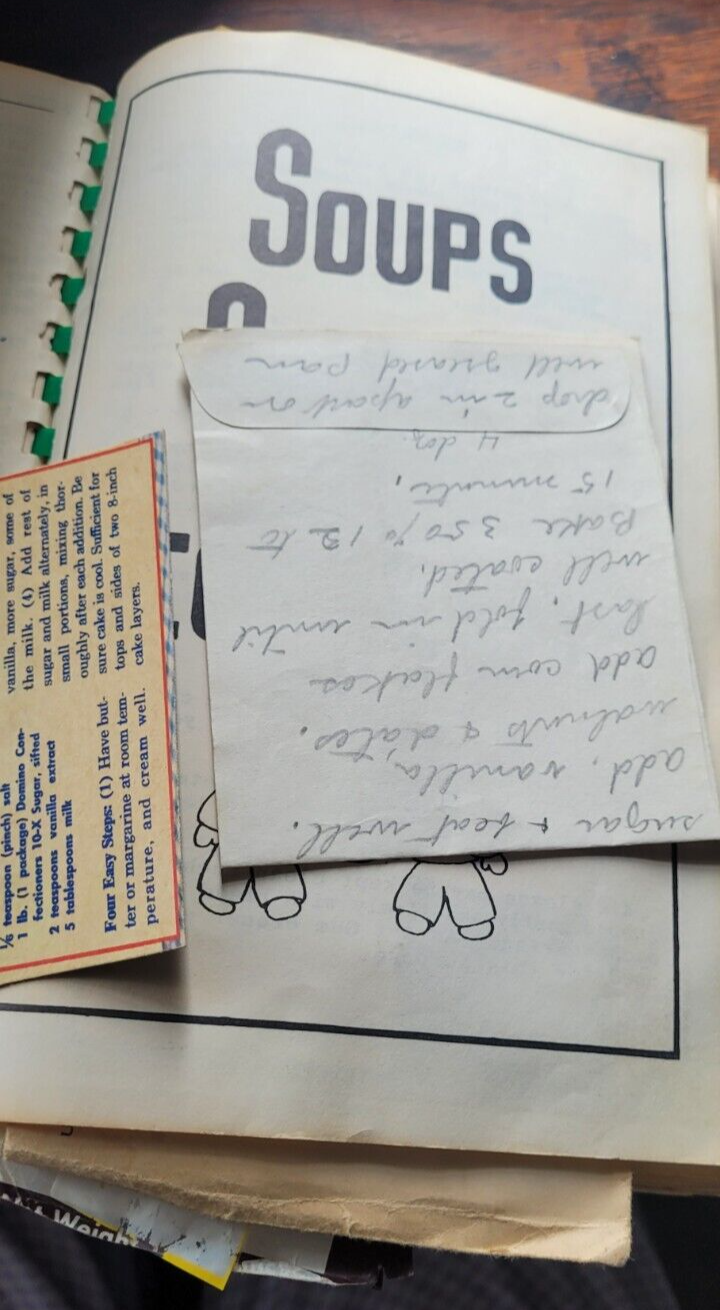 SOUPS
sugar + beat well.
add, vanilla,
walnuts & dates.
add corn flakes
last, fold in until
well coated.
Bake 350% 12 to
15 minute,
4 doz.
drop 2 in apart on
well greased pan
⅛ teaspoon (pinch) salt
1 lb. (1 package) Domino Con-
fectioners 10-X Sugar, sifted
2 teaspoons vanilla extract
5 tablespoons milk
Four Easy Steps: (1) Have but-
ter or margarine at room tem-
perature, and cream well.
vanilla, more sugar, some of
the milk. (4) Add rest of
sugar and milk alternately, in
small portions, mixing thor-
oughly after each addition. Be
sure cake is cool. Sufficient for
tops and sides of two 8-inch
cake layers.
Weigh